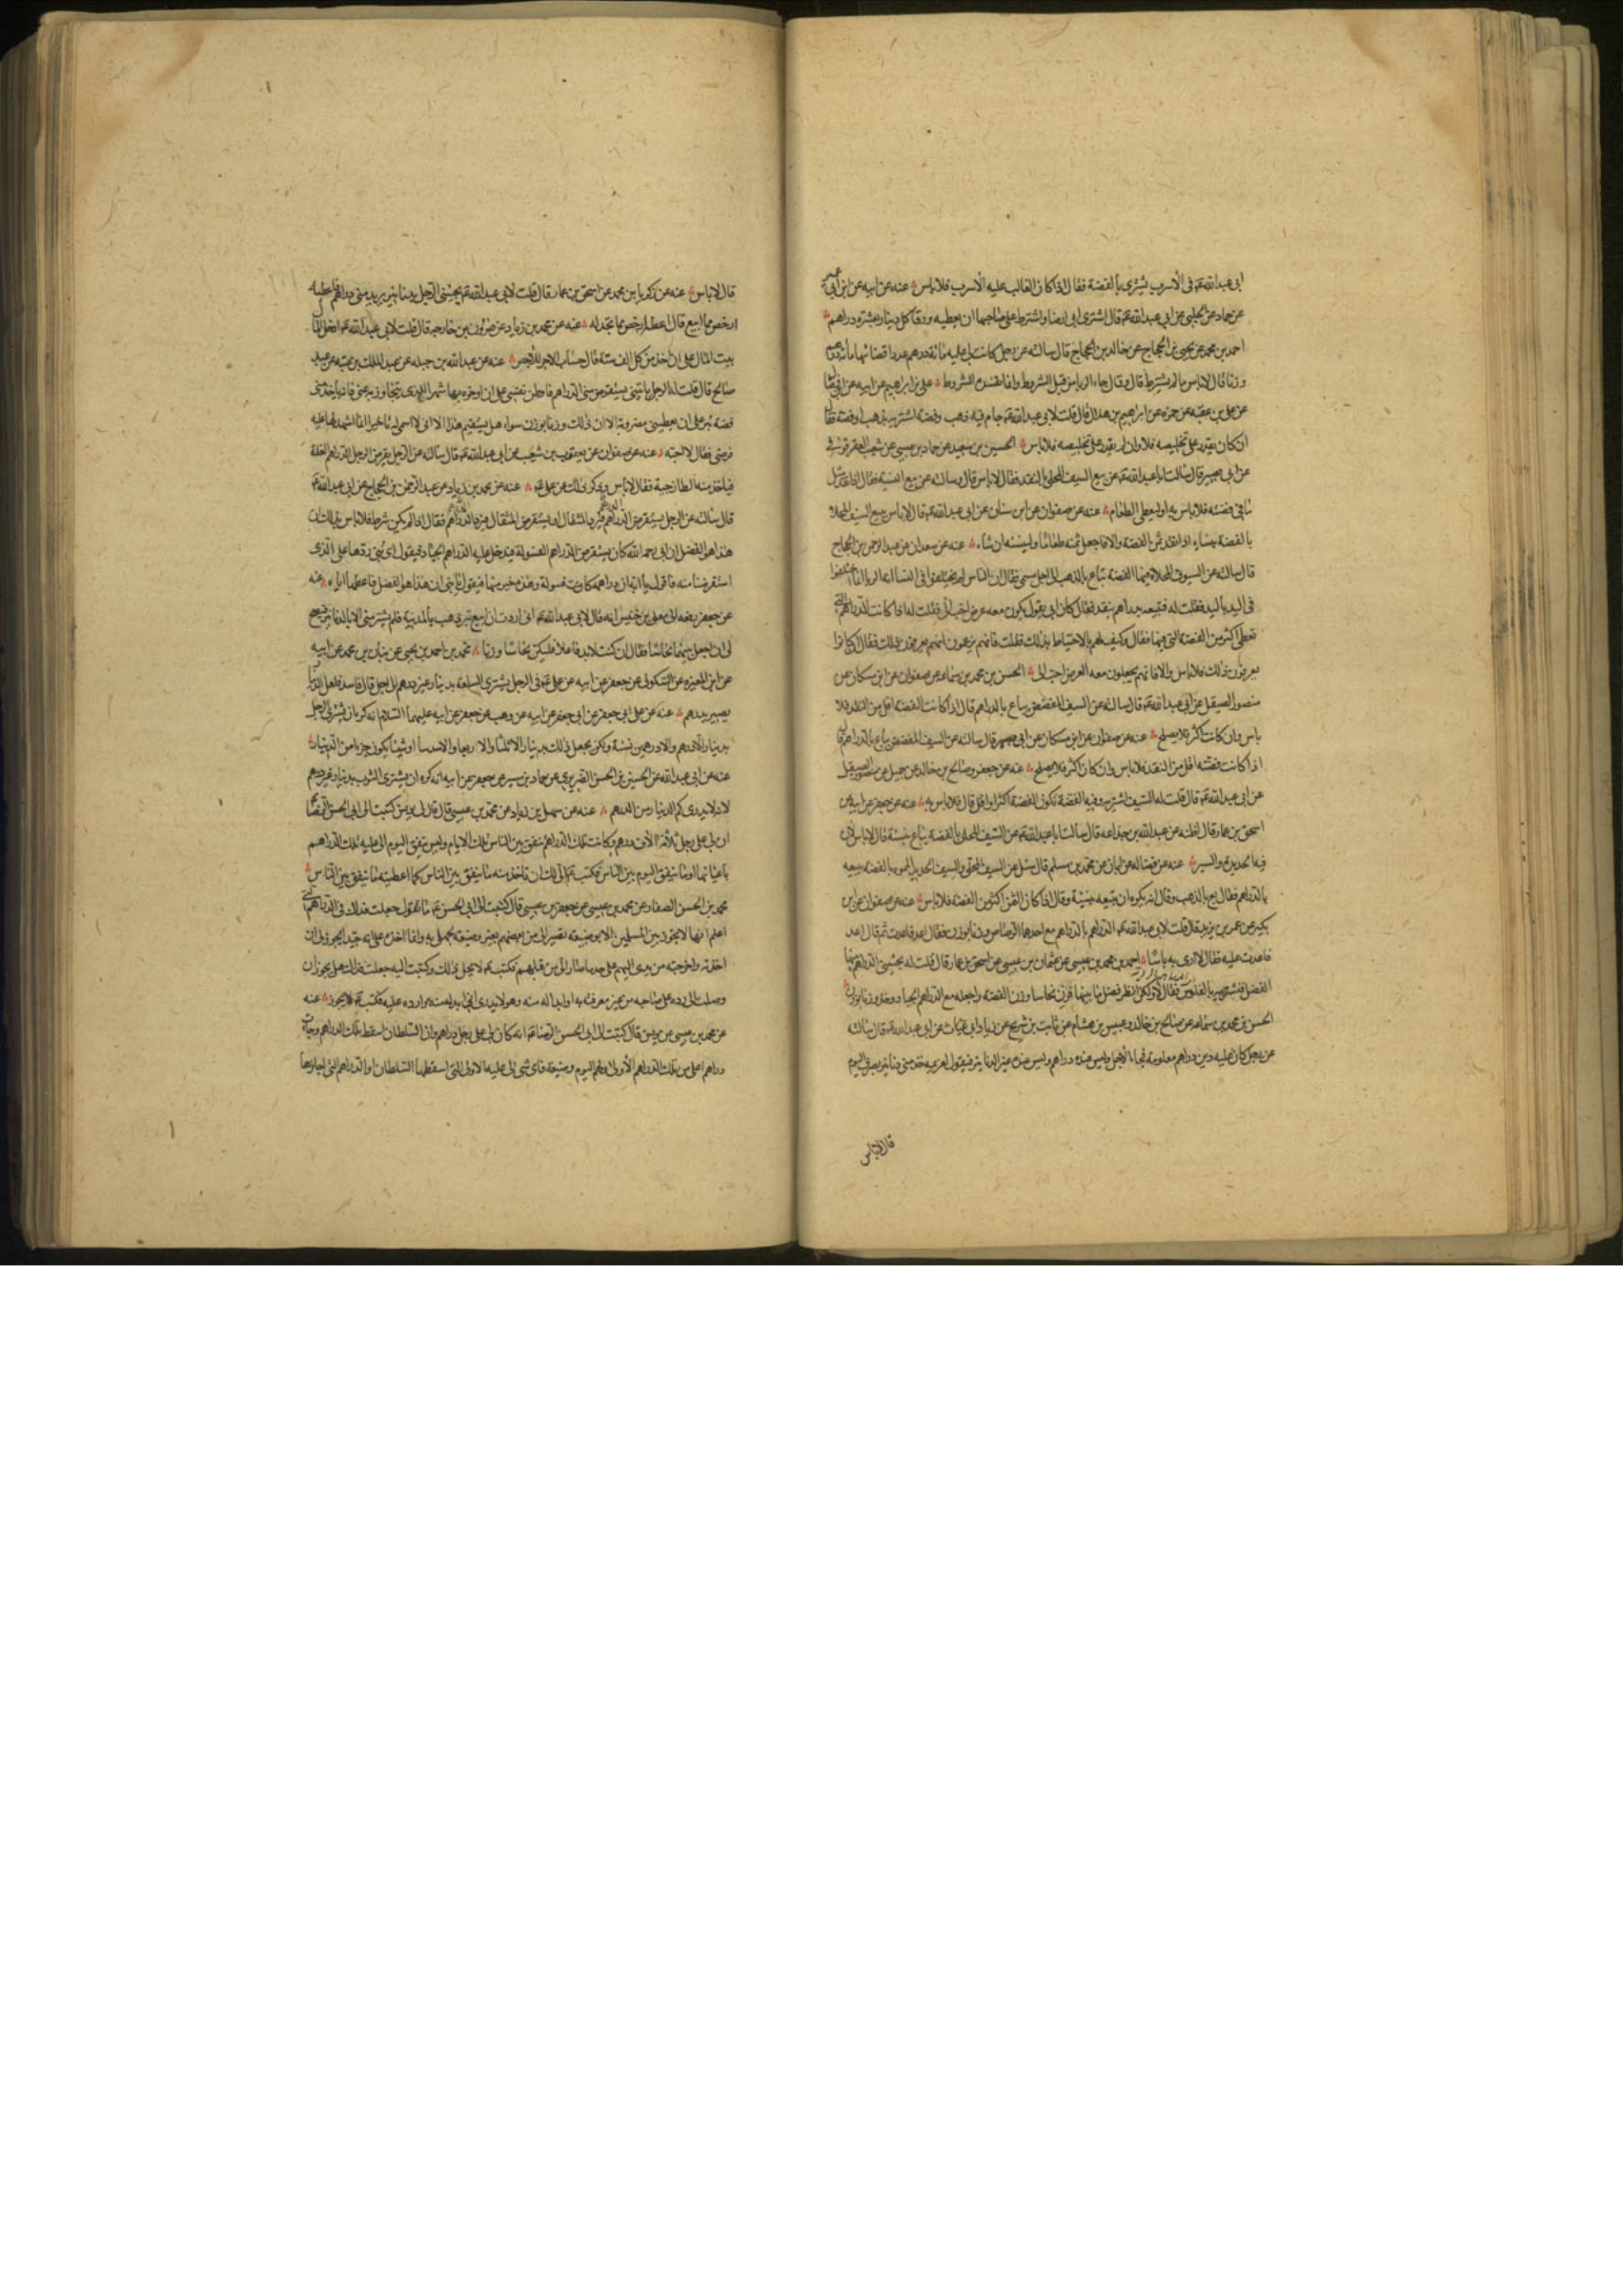 ابى عبدالله ع فى الأسرب يشترى بالفضة فقال اذا كان الغالب عليه الأسرب فلا باس عنه عن ابيه عن ابن ابى عمير
عن حماد عن الحلبى عن ابى عبدالله ع قال اشترى ابى ارضا واشترط على صاحبها ان يعطيه ورقا كل دينار بعشرة دراهم
احمد بن محمد عن يحيى بن الحجاج عن خالد بن الحجاج قال سالته عن رجل كانت لى عليه مائة درهم عددا قضانيها مائة درهم
وزنا قال لا باس ما لم يشترط قال وقال جاء الربا من قبل الشروط وانما تفسده الشروط على بن ابراهيم عن ابيه عن
عن على بن عقبه عن حمزه عن ابراهيم بن هلال قال قلت لابى عبدالله ع جام فيه ذهب وفضة اشتريه بذهب او فضة فقال
ان كان يقدر على تخليصه فلا وان لم يقدر على تخليصه فلا باس الحسين بن سعيد عن حماد بن عيسى عن شعيب العقرقوفى
عن ابى بصير قال سالت ابا عبدالله ع عن بيع السيف المحلى بالنقد فقال لا باس قال وسالته عن بيع النسيه فقال اذا نقد مثل
ما فى فضته فلا باس به او ليعطى الطعام عنه عن صفوان عن ابن سنان عن ابى عبدالله ع قال لا باس ببيع السيف المحلى
بالفضة بنساء اذا نقد ثمن الفضة والا فاجعل ثمنه طعاما ولينسئه ان شاء عنه عن سعدان عن عبد الرحمن بن الحجاج
قال سالته عن السيوف المحلاة فيها الفضة تباع بالذهب الى اجل مسمى فقال ان الناس لم يختلفوا فى النسا انه الربا انما اختلفوا
فى اليد باليد فقلت له فنبيعه بدراهم بنقد فقال كان ابى يقول يكون معه عرض احب الى فقلت له اذا كانت الدراهم التى
تعطى اكثر من الفضة التى فيها فقال وكيف لهم بالاحتياط بذلك فقلت فانهم يزعمون انهم يعرفون ذلك فقال ان كانوا
يعرفون ذلك فلا باس والا فانهم يجعلون معه العرض احب الى الحسن بن محمد بن سماعه عن صفوان عن ابن مسكان عن
منصور الصيقل عن ابى عبدالله ع قال سالته عن السيف المفضض يباع بالدراهم قال اذا كانت الفضة اقل من النقد فلا
باس وان كانت اكثر فلا يصلح عنه عن صفوان عن ابن مسكان عن ابى بصير قال سالته عن السيف المفضض يباع بالدراهم قال
اذا كانت فضته اقل من النقد فلا باس وان كان اكثر فلا يصلح عنه عن جعفر وصالح بن خالد عن جميل عن منصور الصيقل
عن ابى عبدالله ع قال قلت له السيف اشتريه وفيه الفضة تكون الفضة اكثر او اقل قال لا باس به عنه عن جعفر عن ابيه عن
اسحق بن عمار قال اظنه عن عبدالله بن جذاعه قال سالت ابا عبدالله ع عن السيف المحلى بالفضة يباع بنسية قال لا باس لان
فيه الحديد والسير عنه عن فضاله عن ابان عن محمد بن مسلم قال سئل عن السيف المحلى والسيف الحديد المموه بالفضة يبيعه
بالدراهم فقال بع بالذهب وقال انه يكره ان يبيعه بنسية وقال اذا كان الثمن اكثر من الفضة فلا باس عنه عن صفوان عن ابن
بكير عن عمر بن يزيد قال قلت لابى عبدالله ع الدراهم بالدراهم مع احدهما الرصاص وزنا بوزن فقال اعد فاعدت ثم قال اعد
فاعدت عليه فقال لا ارى به باسا احمد بن محمد بن عيسى عن عثمان بن عيسى عن اسحق بن عمار قال قلت له تجيئنى الدراهم بينها
الفضل فنشتريه بالفلوس فقال لا ولكن انظر فضل ما بينهما فزن نحاسا وزن الفضة واجعله مع الدراهم الجياد وخذ وزنا بوزن
الحسن بن محمد بن سماعه عن صالح بن خالد وعبيس بن هشام عن ثابت بن شريح عن زياد ابى غياث عن ابى عبدالله ع قال سالته
عن رجل كان عليه دين دراهم معلومة فجاء الاجل وليس عنده دراهم وليس عنده غير الدنانير فيقول لغريمه خذ منى دنانير بصرف اليوم
قال لا باس
قال لا باس عنه عن زكريا بن محمد عن اسحق بن عمار قال قلت لابى عبدالله ع يجيئنى الرجل بدنانير يريد منى دراهم فاعطيه
ارخص مما ابيع قال اعطه ارخص مما تجد له عنه عن محمد بن زياد عن هرون بن خارجه قال قلت لابى عبدالله ع ادخل المال
بيت المال على ان اخذ من كل الف ستة قال حساب الاجر للأجر عنه عن عبدالله بن جبله عن عبد الملك بن عتبه عن عبد
صالح قال قلت له الرجل ياتينى يستقرض منى الدراهم فاوطن نفسى على ان اوخره بها شهرا للذى يتجاوز به عنى فانه ياخذ منى
فضة تبر على ان يعطينى مضروبة الا ان ذلك وزنا بوزن سواء هل يستقيم هذا الا انى لا اسمى له تاخيرا انما اشهد لها عليه
فيرضى فقال لا احبه عنه عن صفوان عن يعقوب بن شعيب عن ابى عبدالله ع قال سالته عن الرجل يقرض الرجل الدراهم الغلة
فياخذ منه الطازجية فقال لا باس وذكر ذلك عن على ع عنه عن محمد بن زياد عن عبد الرحمن بن الحجاج عن ابى عبدالله ع
قال سالته عن الرجل يستقرض الدراهم فيرد بالمثقال او يستقرض المثقال فيرد الدراهم فقال اذا لم يكن شرط فلا باس بذلك ان
هذا هو الفضل ان ابى رحمه الله كان يستقرض الدراهم الفسولة فيدخل عليه الدراهم الجياد فيقول اى بنى ردها على الذى
استقرضنا منه فاقول يا ابه ان دراهمه كانت فسولة وهذه خير منها فيقول يا بنى ان هذا هو الفضل فاعطها اياه عنه
عن جعفر رفعه الى معلى بن خنيس انه قال لابى عبدالله ع انى اردت ان ابيع تبر ذهب بالمدينة فلم يشتر منى الا بالدنانير فيصح
لى ان اجعل بينهما نحاسا فقال ان كنت لا بد فاعلا فليكن نحاسا وزنا محمد بن احمد بن يحيى عن بنان بن محمد عن ابيه
عن ابن المغيره عن السكونى عن جعفر عن ابيه عن على ع فى الرجل يشترى السلعة بدينار غير درهم الى اجل قال فاسد فلعل الدينار
يصير بدرهم عنه عن على ابى جعفر عن ابى جعفر عن ابيه عن وهب عن جعفر عن ابيه عليهما السلام انه كره ان يشترى الرجل
بدينار الا درهم والا درهمين نسئة ولكن يجعل ذلك بدينار الا ثلثا والا ربعا والا سدسا او شيئا يكون جزءا من الدينار
عنه عن ابى عبدالله عن الحسين بن الحسن الضرير عن حماد بن ميسر عن جعفر عن ابيه انه كره ان يشترى الثوب بدينار غير درهم
لانه لا يدرى كم الدينار من الدرهم عنه عن سهل بن زياد عن محمد بن عيسى قال قال لى يونس كتبت الى ابى الحسن الرضا ع
ان لى على رجل ثلاثة آلاف درهم وكانت تلك الدراهم تنفق بين الناس تلك الايام وليس تنفق اليوم الى عليه تلك الدراهم
باعيانها او ما ينفق اليوم بين الناس فكتب ع الى لك ان تاخذ منه ما ينفق بين الناس كما اعطيته ما ينفق بين الناس
محمد بن الحسن الصفار عن محمد بن عيسى عن جعفر بن عيسى قال كتبت الى ابى الحسن ع ما تقول جعلت فداك فى الدراهم التى
اعلم انها لا يجوز بين المسلمين الا بوضيعه تصير الى من بعضهم بغير وضيعه بجهلى به وانما اخذه على انه جيد ايجوز لى ان
اخذه واخرجه من يدى اليهم على حد ما صار الى من قبلهم فكتب ع لا يحل ذلك وكتبت اليه جعلت فداك هل يجوز ان
وصلت الى رده على صاحبه من غير معرفته به او ابداله منه وهو لا يدرى انى ابدله منه وارده عليه فكتب ع لا يجوز عنه
عن محمد بن عيسى عن يونس قال كتبت الى ابى الحسن الرضا ع انه كان لى على رجل دراهم وان السلطان اسقط تلك الدراهم وجاءت
دراهم اعلى من تلك الدراهم الأولى ولهم اليوم وضيعة فاى شى لى عليه الاولى التى اسقطها السلطان او الدراهم التى اجازها